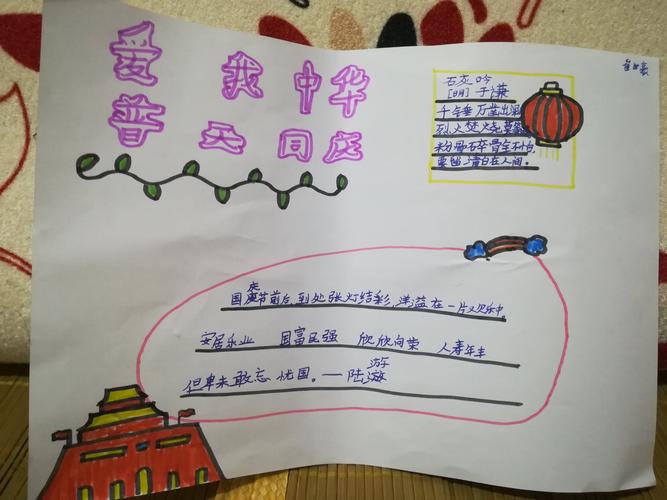 爱我中华
普天同庆
石灰吟
[明]于谦
千年垂万凿出
烈火焚烧
粉骨碎骨全不怕,
要留清白在人间。
国庆节前后,到处张灯结彩,洋溢在一片欢乐中,
安居乐业 国富民强 欣欣向荣 人寿年丰
但卑未敢忘忧国。——陆游